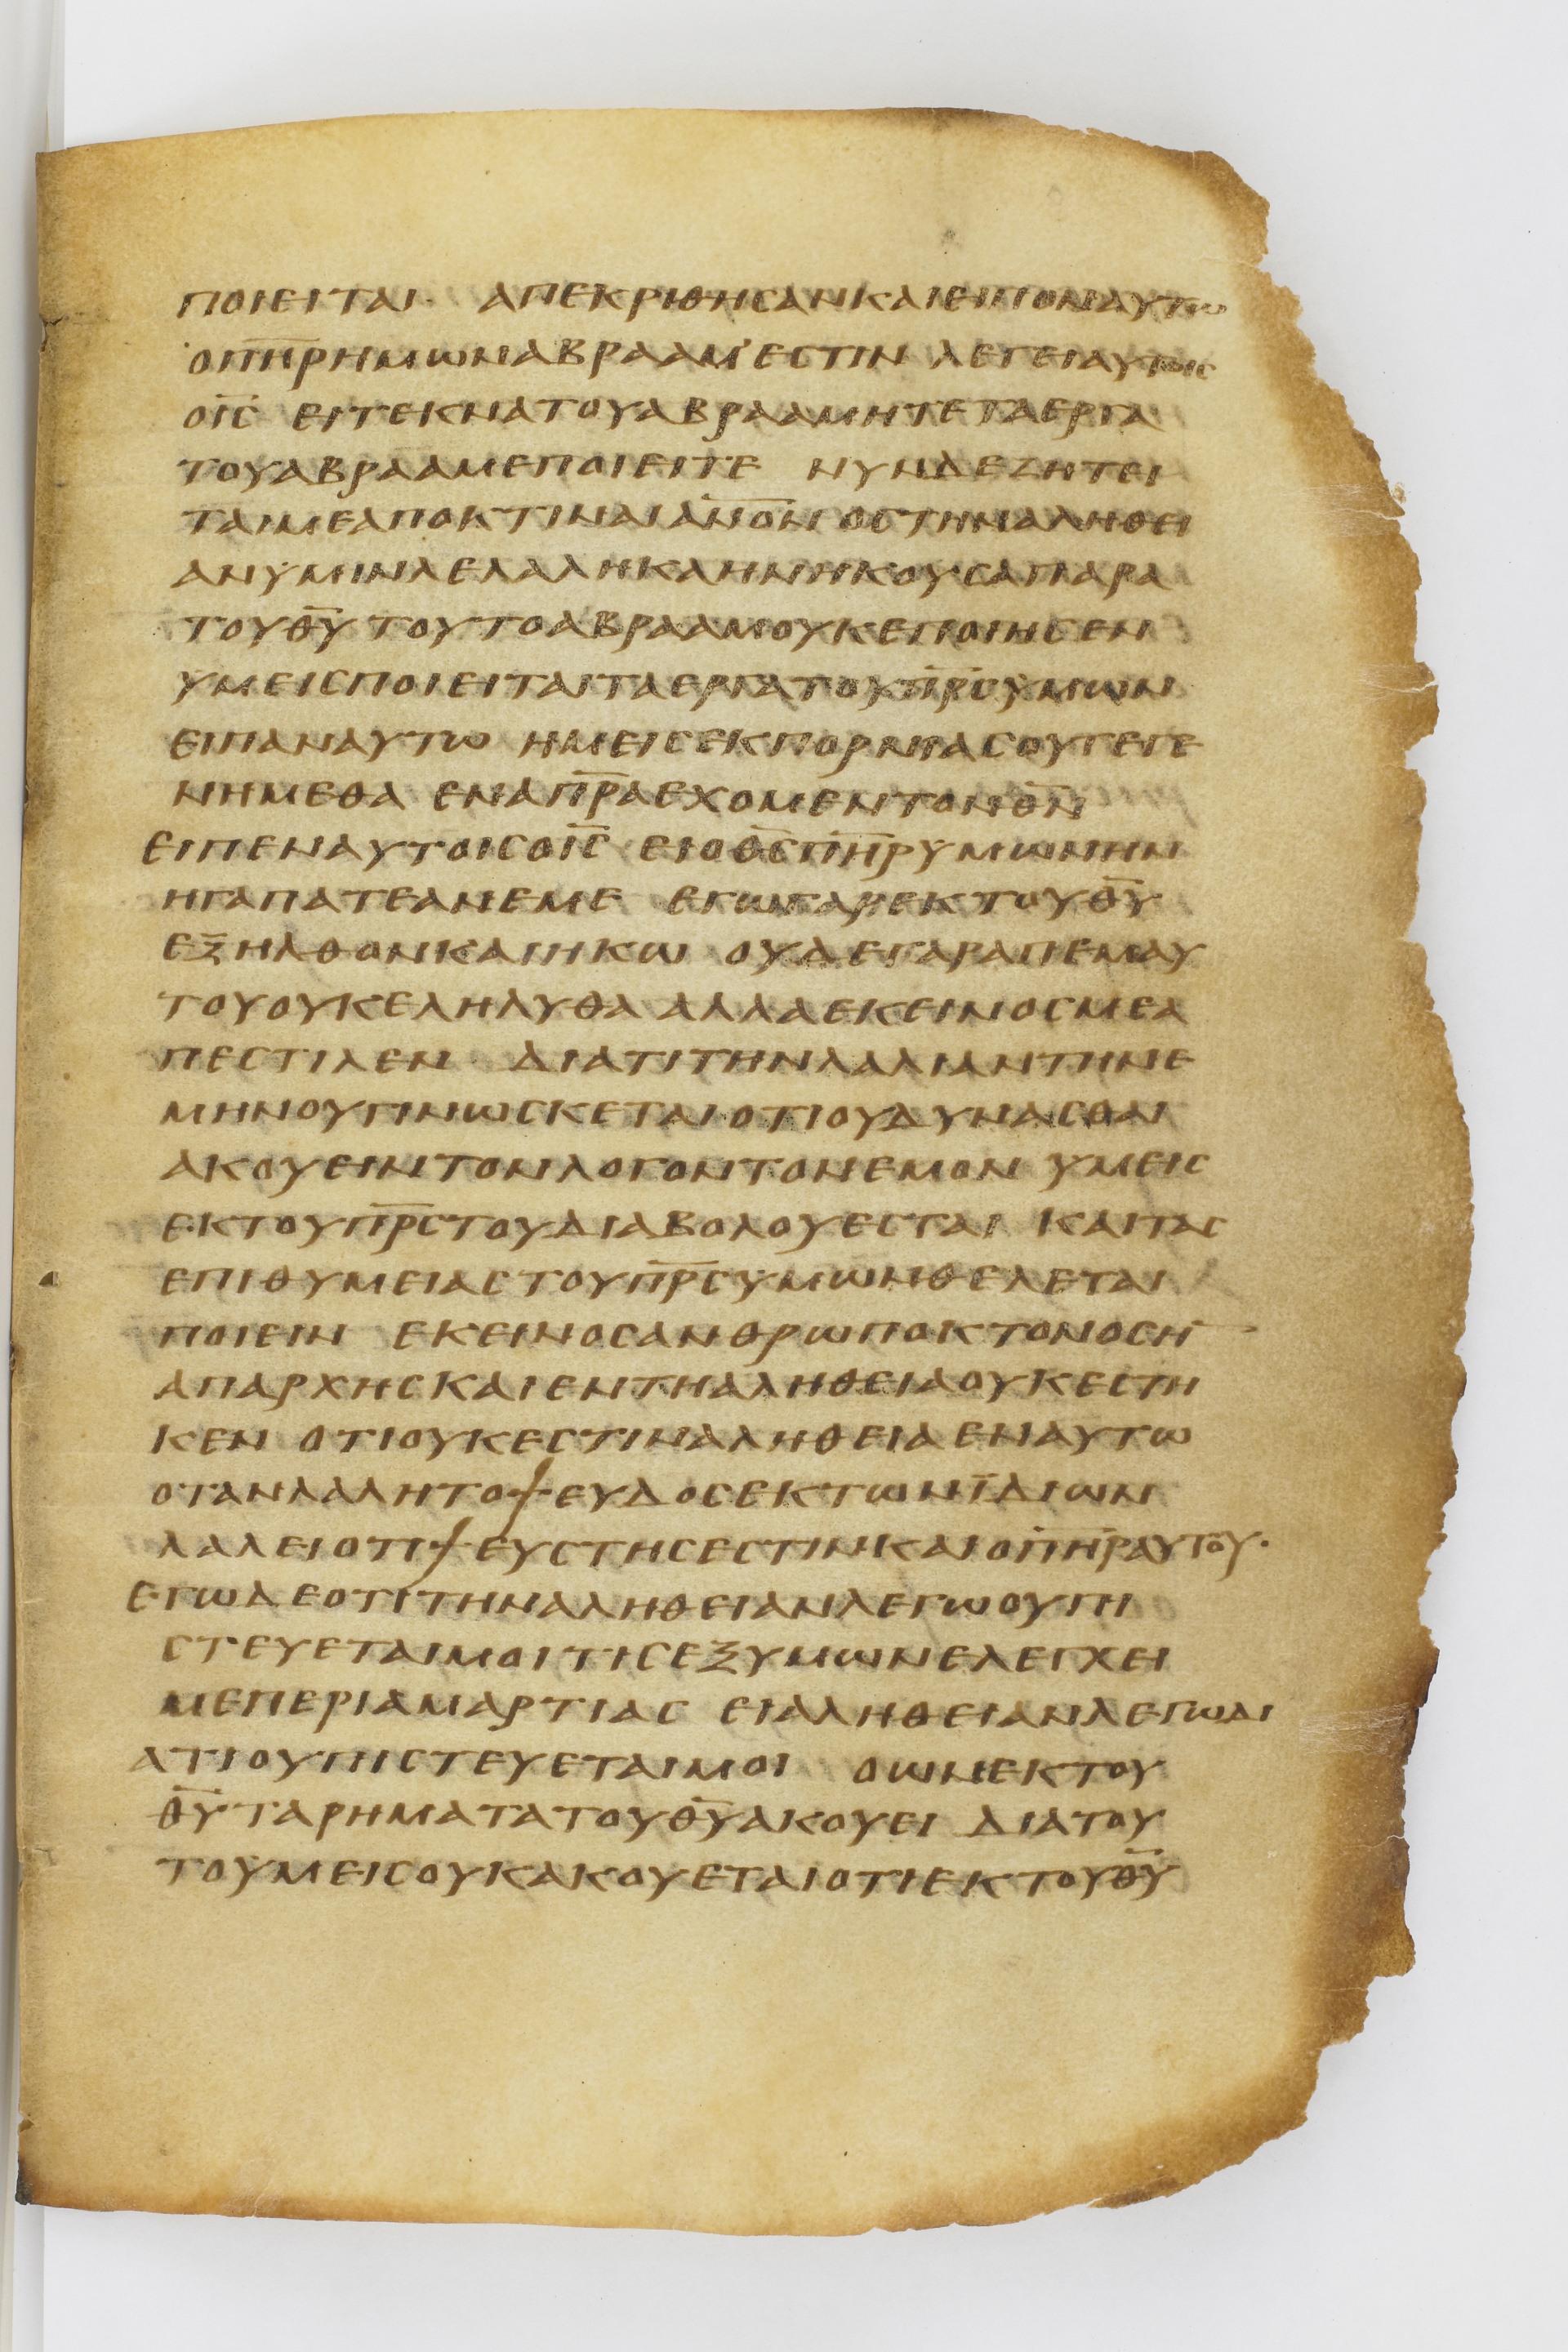 ποιειται απεκριθησανκαιειποναυτω
οπ̅η̅ρ̅ημωναβρααμ'εστιν λεγειαυτοις
οι̅ς̅ ειτεκνατουαβρααμητεταεργα
τουαβρααμεποιειτε νυνδεζητει
ταιμεαποκτιναια̅ν̅ο̅ν̅οστηναληθει
ανυμινλελαληκαηνηκουσαπαρα
τουθ̅υ̅ τουτοαβρααμουκεποιησεν
υμειςποιειταιταεργατουπ̅ρ̅ς̅υμων
ειπαναυτω ημεισεκπορνιασουγεγε
νημεθα εναπ̅ρ̅αεχομεντονθ̅ν̅
ειπεναυτοισοι̅ς̅ ειοθ̅ς̅π̅η̅ρ̅υμωνην
ηγαπατεανεμε εγωγαρεκτουθ̅υ̅
εξηλθονκαιηκω ουδεγαραπεμαυ
τουουκεληλυθα αλλαεκεινοσμεα
πεστιλεν διατιτηνλαλιαντηνε
μηνουγινωσκεται οτιουδυνασθαι
ακουειντονλογοντονεμον υμεις
εκτουπ̅ρ̅ς̅τουδιαβολουεσται καιτας
επιθυμειαςτουπ̅ρ̅ς̅υμωνθελεται
ποιειν εκεινοσανθρωποκτονοση̅
απαρχηςκαιεντηαληθειαουκεστη
κεν οτιουκεστιναληθειαεναυτω
οτανλαλητοψευδοσεκτωνϊδιων
λαλειοτιψευστησεστινκαιοπ̅η̅ρ̅αυτου·
εγωδεοτιτηναληθειανλεγωουπι
στευεταιμοιτισεξυμωνελεγχει
μεπεριαμαρτιας ειαληθειανλεγωδι
ατιουπιστευεταιμοι οωνεκτου
θ̅υ̅ταρηματατουθ̅υ̅ακουει διατου
τουμεισουκακουεταιοτιεκτουθ̅υ̅